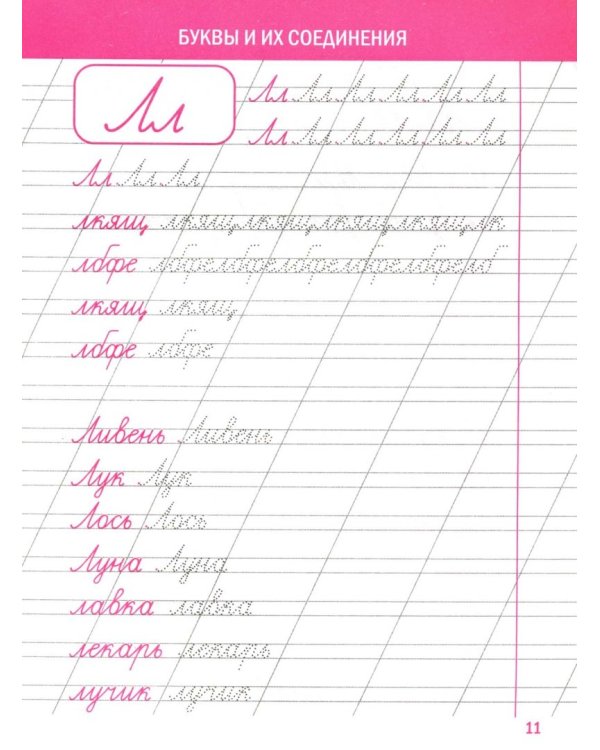 БУКВЫ И ИХ СОЕДИНЕНИЯ
Лл Лл Лл Лл Лл Лл Лл
Лл Лл Лл Лл Лл Лл Лл
Лл Лл Лл
лкящ лкящлкящлкящлкящлк
лбфе лбфелбфелбфелбфелб
лкящ лкящ
лбфе лбфе
Ливень Ливень
Лук Лук
Лось Лось
Луна Луна
лавка лавка
лекарь лекарь
лучик лучик
11